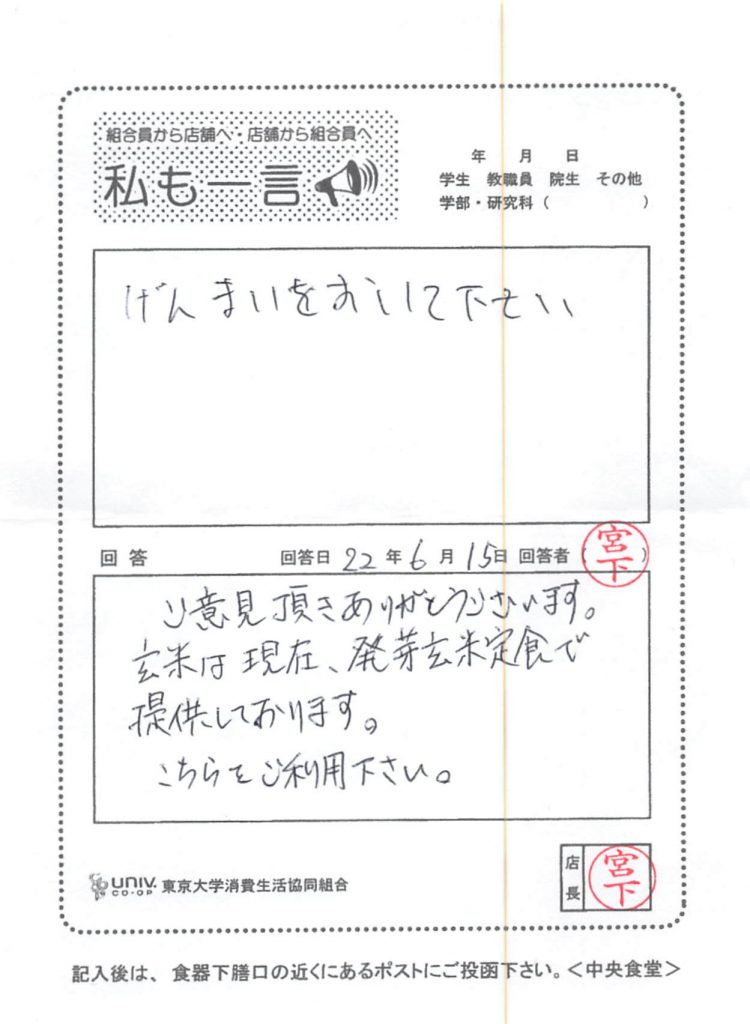 組合員から店舗へ・店舗から組合員へ
私も一言
年 月 日
学生 教職員 院生 その他
学部・研究科（ ）
げんまいをおいて下さい
回答 回答日 22年6月15日 回答者（宮下）
ご意見頂きありがとうございます。
玄米は現在、発芽玄米定食で
提供しております。
こちらをご利用下さい。
UNIV. CO-OP 東京大学消費生活協同組合
店長 宮下
記入後は、食器下膳口の近くにあるポストにご投函下さい。＜中央食堂＞